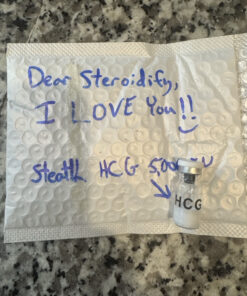 Dear Steroidify,
I LOVE You!!
Stealth HCG 5,000
HCG